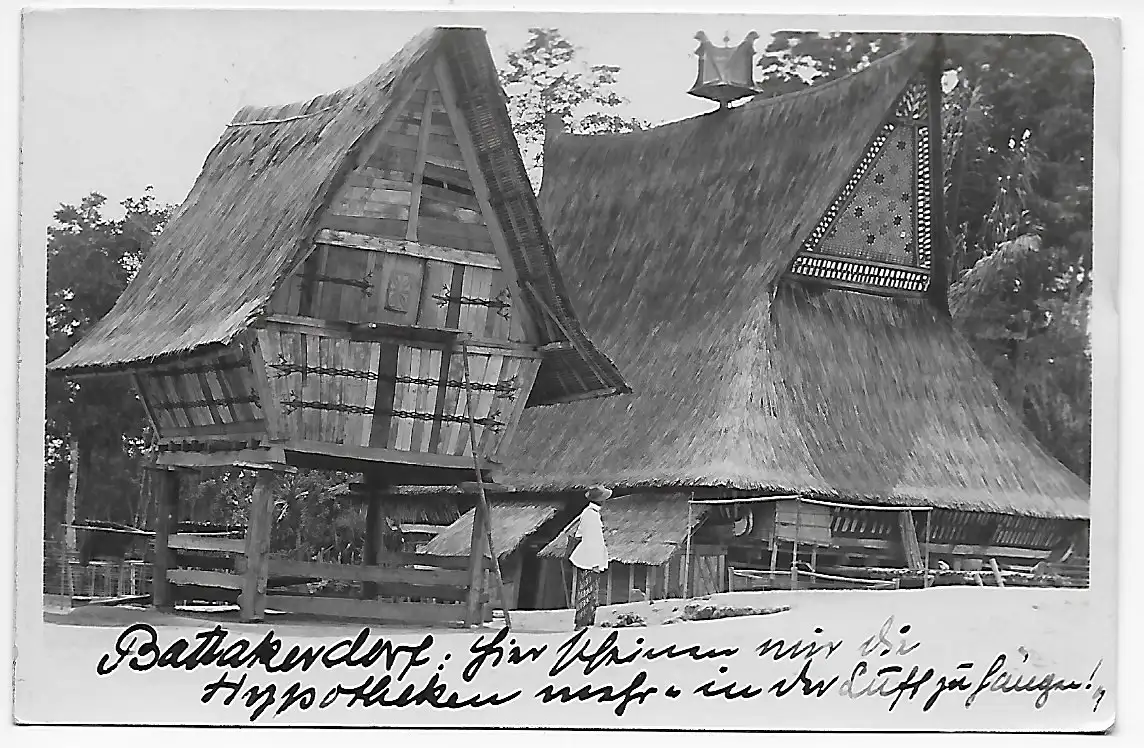 Battakerdorf: hier scheinen mir die
Hypotheken mehr „ in der Luft zu hängen! "